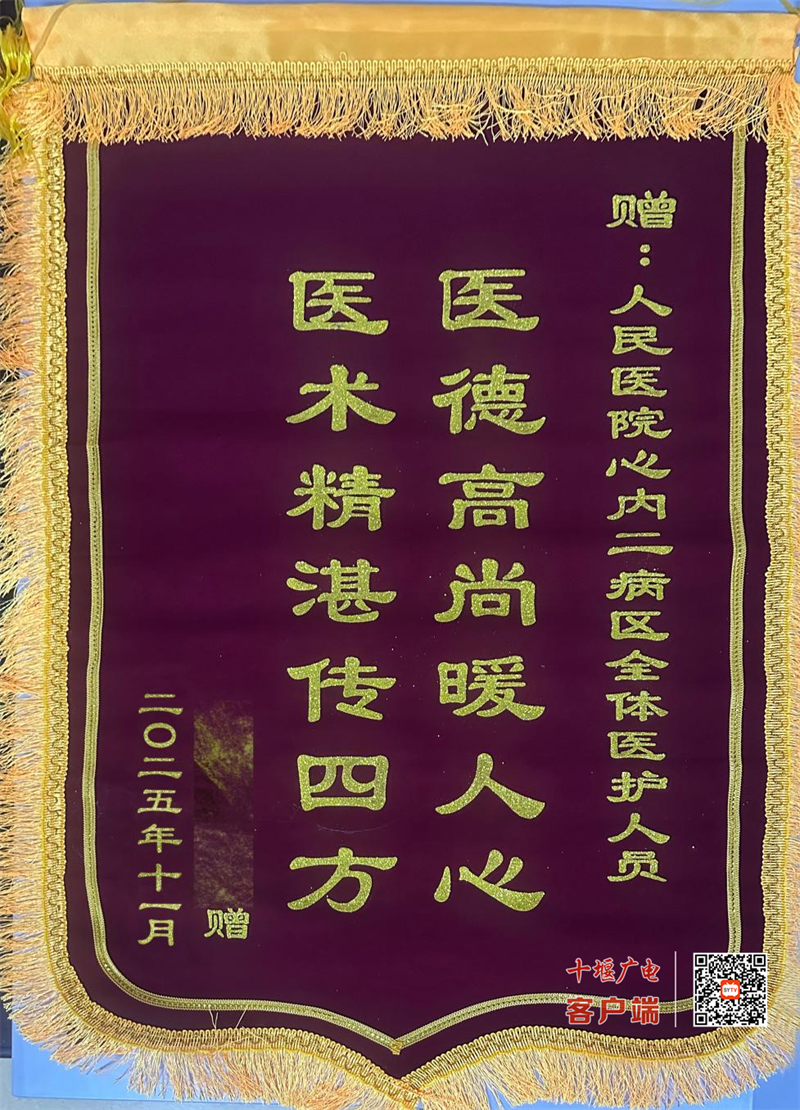 赠：人民医院心内二病区全体医护人员
医德高尚暖人心
医术精湛传四方
赠
二〇二五年十一月
十堰广电
客户端
SYTV